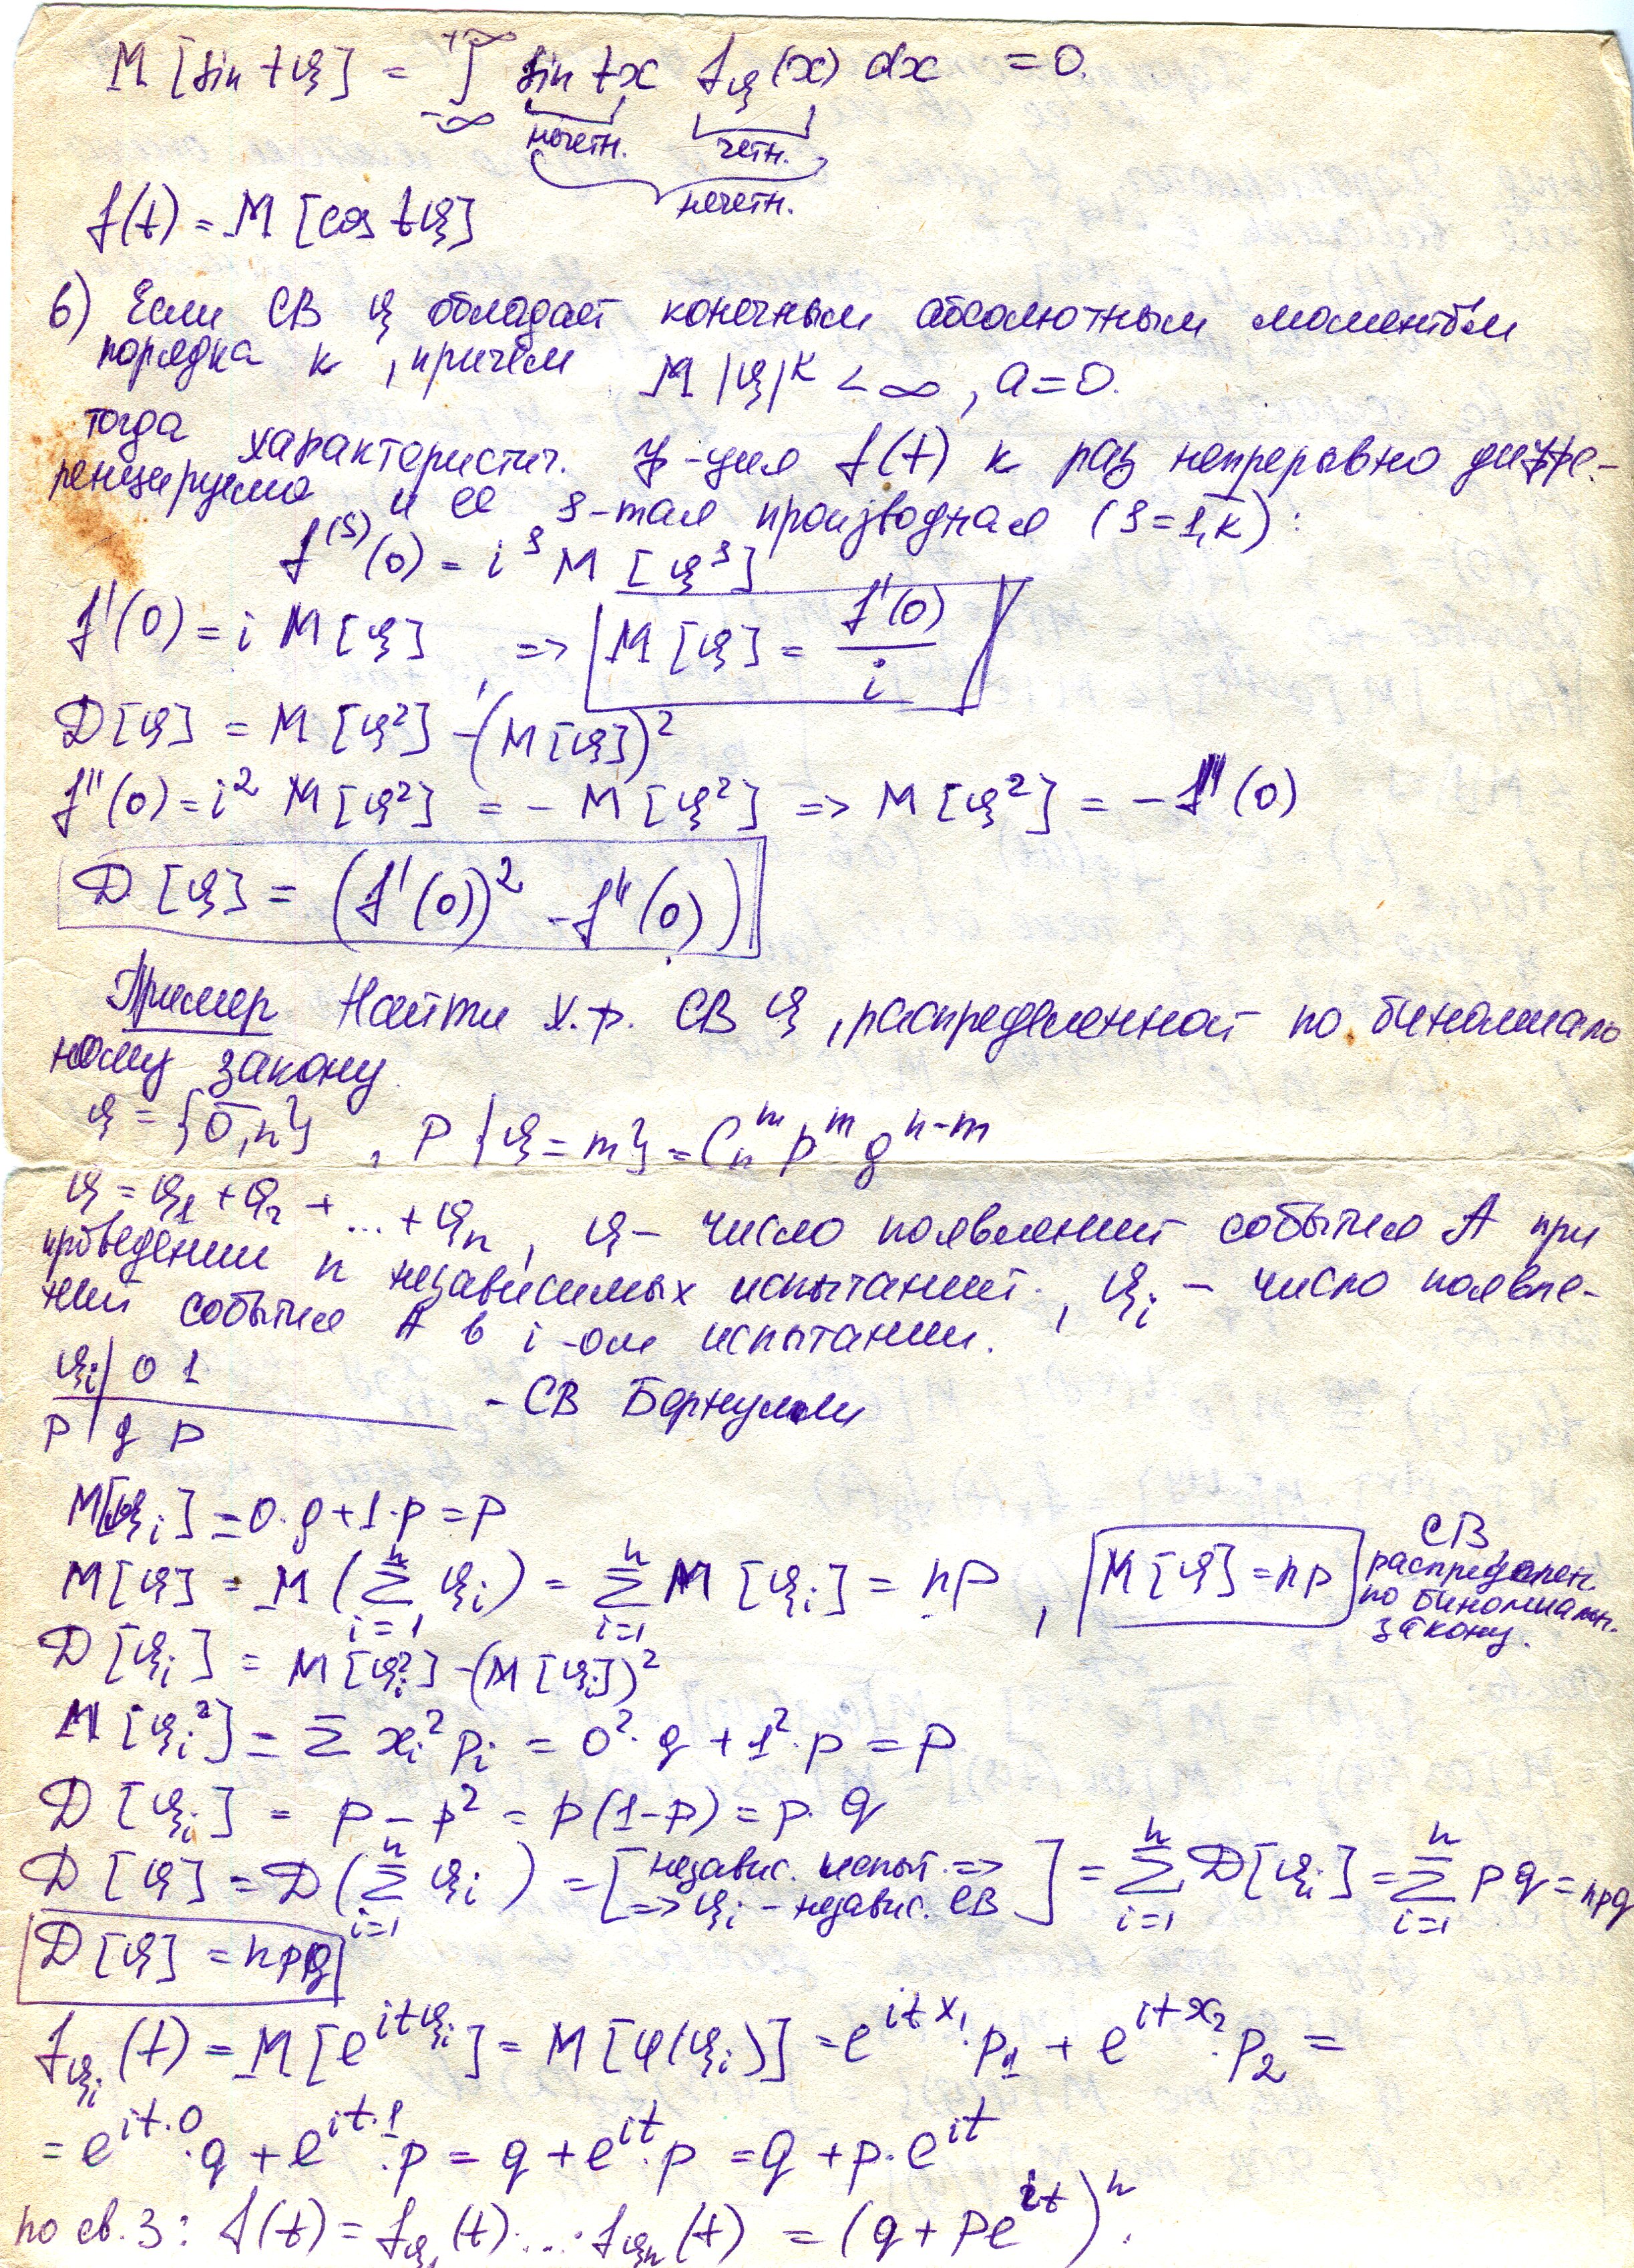 M[sin tξ] = ∫_{-∞}^{+∞} sin tx f_ξ(x) dx = 0.
нечетн. четн.
нечетн.
f(t) = M[cos tξ]
6) Если СВ ξ обладает конечным абсолютным моментом
порядка к, причём M|ξ|^k < ∞, a=0.
тогда характеристич. ф-ция f(t) к раз непрерывно диффе-
ренцируема и её s-тая производная (s=1,k):
f^(s)(0) = i^s M[ξ^s]
f'(0) = i M[ξ] , => M[ξ] = f'(0)/i
Д[ξ] = M[ξ²] - (M[ξ])²
f''(0) = i² M[ξ²] = - M[ξ²] => M[ξ²] = - f''(0)
Д[ξ] = (f'(0))² - f''(0)
Пример Найти х.ф. СВ ξ, распределенной по биномиаль
ному закону
ξ = {0,n} , P{ξ=m} = C_n^m p^m q^{n-m}
ξ = ξ₁ + ξ₂ + ... + ξn , ξ – число появлений события А при
проведении n независимых испытаний , ξi – число появле-
ний события А в i-ом испытании.
ξi | 0 1
- СВ Бернулли
P | q p
M[ξi] = 0·q + 1·p = p
M[ξ] = M(∑_{i=1}^n ξi) = ∑_{i=1}^n M[ξi] = np , M[ξ] = np СВ
распределен.
по биномиальн.
закону.
Д[ξi] = M[ξi²] - (M[ξi])²
M[ξi²] = ∑ xi² pi = 0²·q + 1²·p = p
Д[ξi] = p - p² = p(1-p) = p·q
Д[ξ] = Д(∑_{i=1}^n ξi) = [независ. испыт. => => ξi - независ. СВ] = ∑_{i=1}^n Д[ξi] = ∑_{i=1}^n pq = npq
Д[ξ] = npq
f_{ξi}(t) = M[e^{itξi}] = M[φ(ξi)] = e^{itx₁}·p₁ + e^{itx₂}·p₂ =
= e^{it·0}·q + e^{it·1}·p = q + e^{it}·p = q + p·e^{it}
по св.3: f(t) = f_{ξ₁}(t)·...·f_{ξn}(t) = (q + pe^{it})^n.